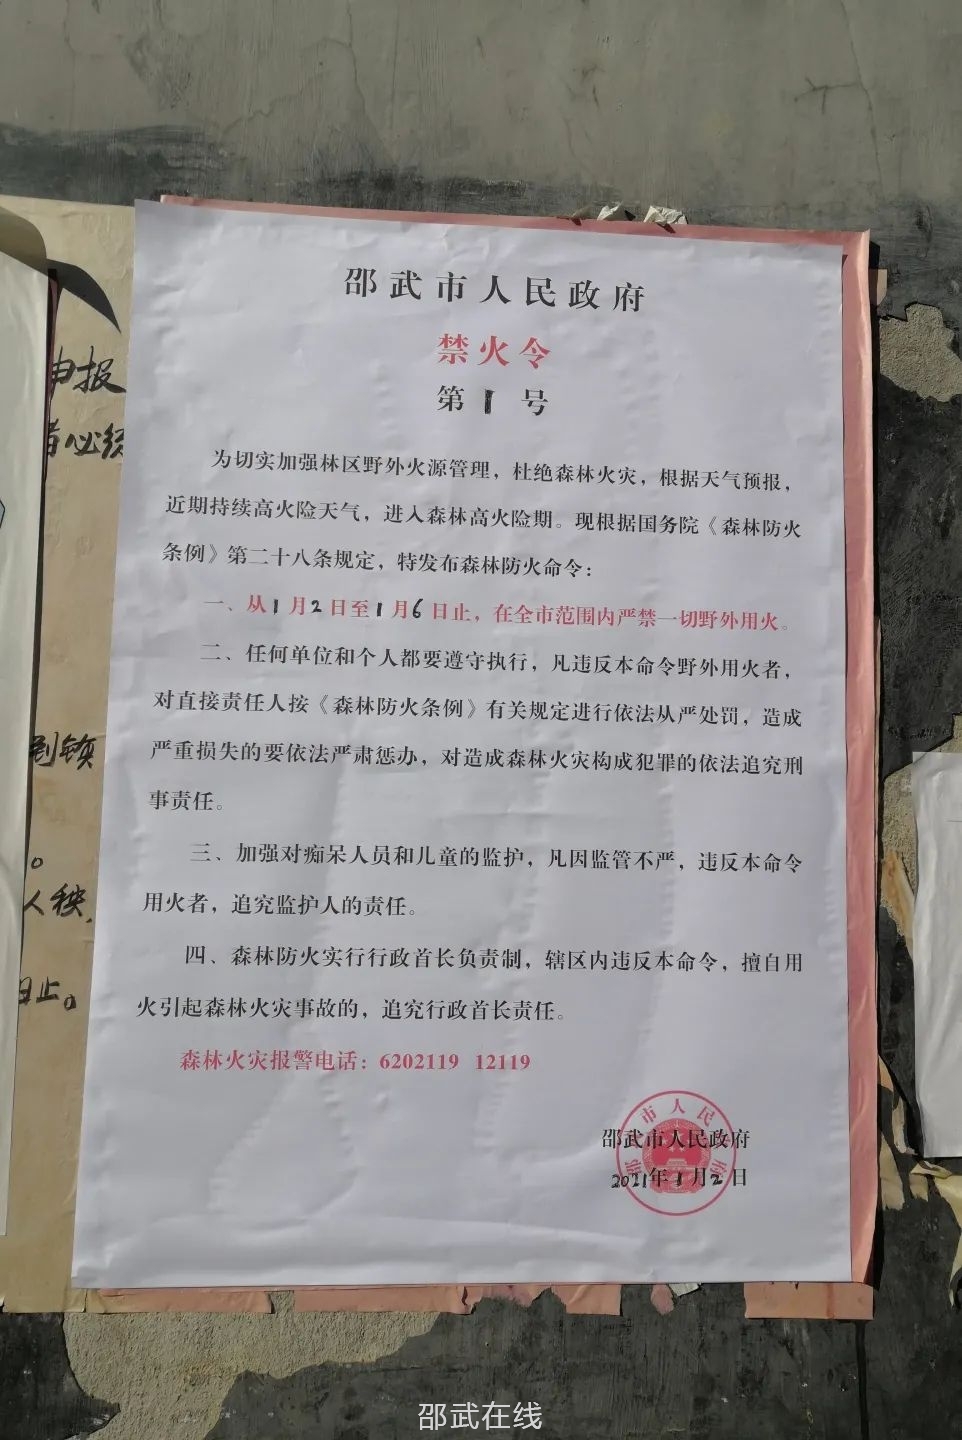 邵武市人民政府
禁火令
第1号
为切实加强林区野外火源管理，杜绝森林火灾，根据天气预报，
近期持续高火险天气，进入森林高火险期。现根据国务院《森林防火
条例》第二十八条规定，特发布森林防火命令：
一、从1月2日至1月6日止，在全市范围内严禁一切野外用火。
二、任何单位和个人都要遵守执行，凡违反本命令野外用火者，
对直接责任人按《森林防火条例》有关规定进行依法从严处罚，造成
严重损失的要依法严肃惩办，对造成森林火灾构成犯罪的依法追究刑
事责任。
三、加强对痴呆人员和儿童的监护，凡因监管不严，违反本命令
用火者，追究监护人的责任。
四、森林防火实行行政首长负责制，辖区内违反本命令，擅自用
火引起森林火灾事故的，追究行政首长责任。
森林火灾报警电话：6202119 12119
邵武市人民政府
2021年1月2日
申报
者必须
到镇
。
人秧，
日止。
邵武在线